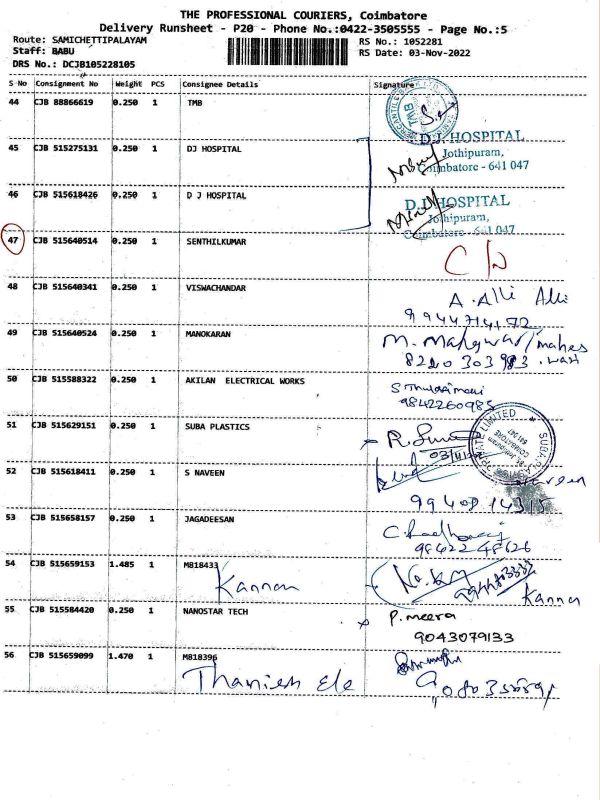 THE PROFESSIONAL COURIERS, Coimbatore
Delivery Runsheet - P20 - Phone No.:0422-3505555 - Page No.:5
Route: SAMICHETTIPALAYAM
RS No.: 1052281
Staff: BABU
RS Date: 03-Nov-2022
DRS No.: DCJB105228105
S No Consignment No Weight PCS Consignee Details Signature
44 CJB 88866619 0.250 1 TMB
TMB
45 CJB 515275131 0.250 1 DJ HOSPITAL
D.J. HOSPITAL
Jothipuram,
Coimbatore - 641 047
46 CJB 515618426 0.250 1 D J HOSPITAL
D.J. HOSPITAL
Jothipuram,
Coimbatore - 641 047
47 CJB 515640514 0.250 1 SENTHILKUMAR
48 CJB 515640341 0.250 1 VISWACHANDAR
A. Alli Alli
9944714172
49 CJB 515640524 0.250 1 MANOKARAN
8220303983
50 CJB 515588322 0.250 1 AKILAN ELECTRICAL WORKS
9842260985
51 CJB 515629151 0.250 1 SUBA PLASTICS
52 CJB 515618411 0.250 1 S NAVEEN
53 CJB 515658157 0.250 1 JAGADEESAN
9842248626
54 CJB 515659153 1.485 1 M818433
Kannan
55 CJB 515584420 0.250 1 NANOSTAR TECH
P. meera
9043079133
56 CJB 515659099 1.470 1 M818396